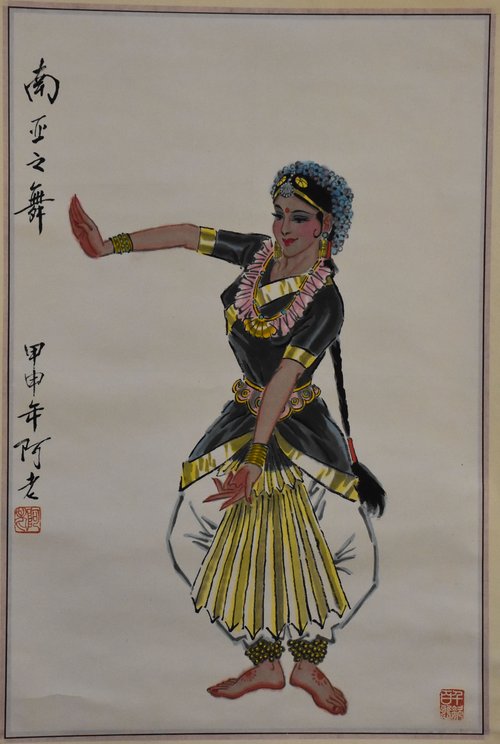 南亚之舞
甲申年阿老